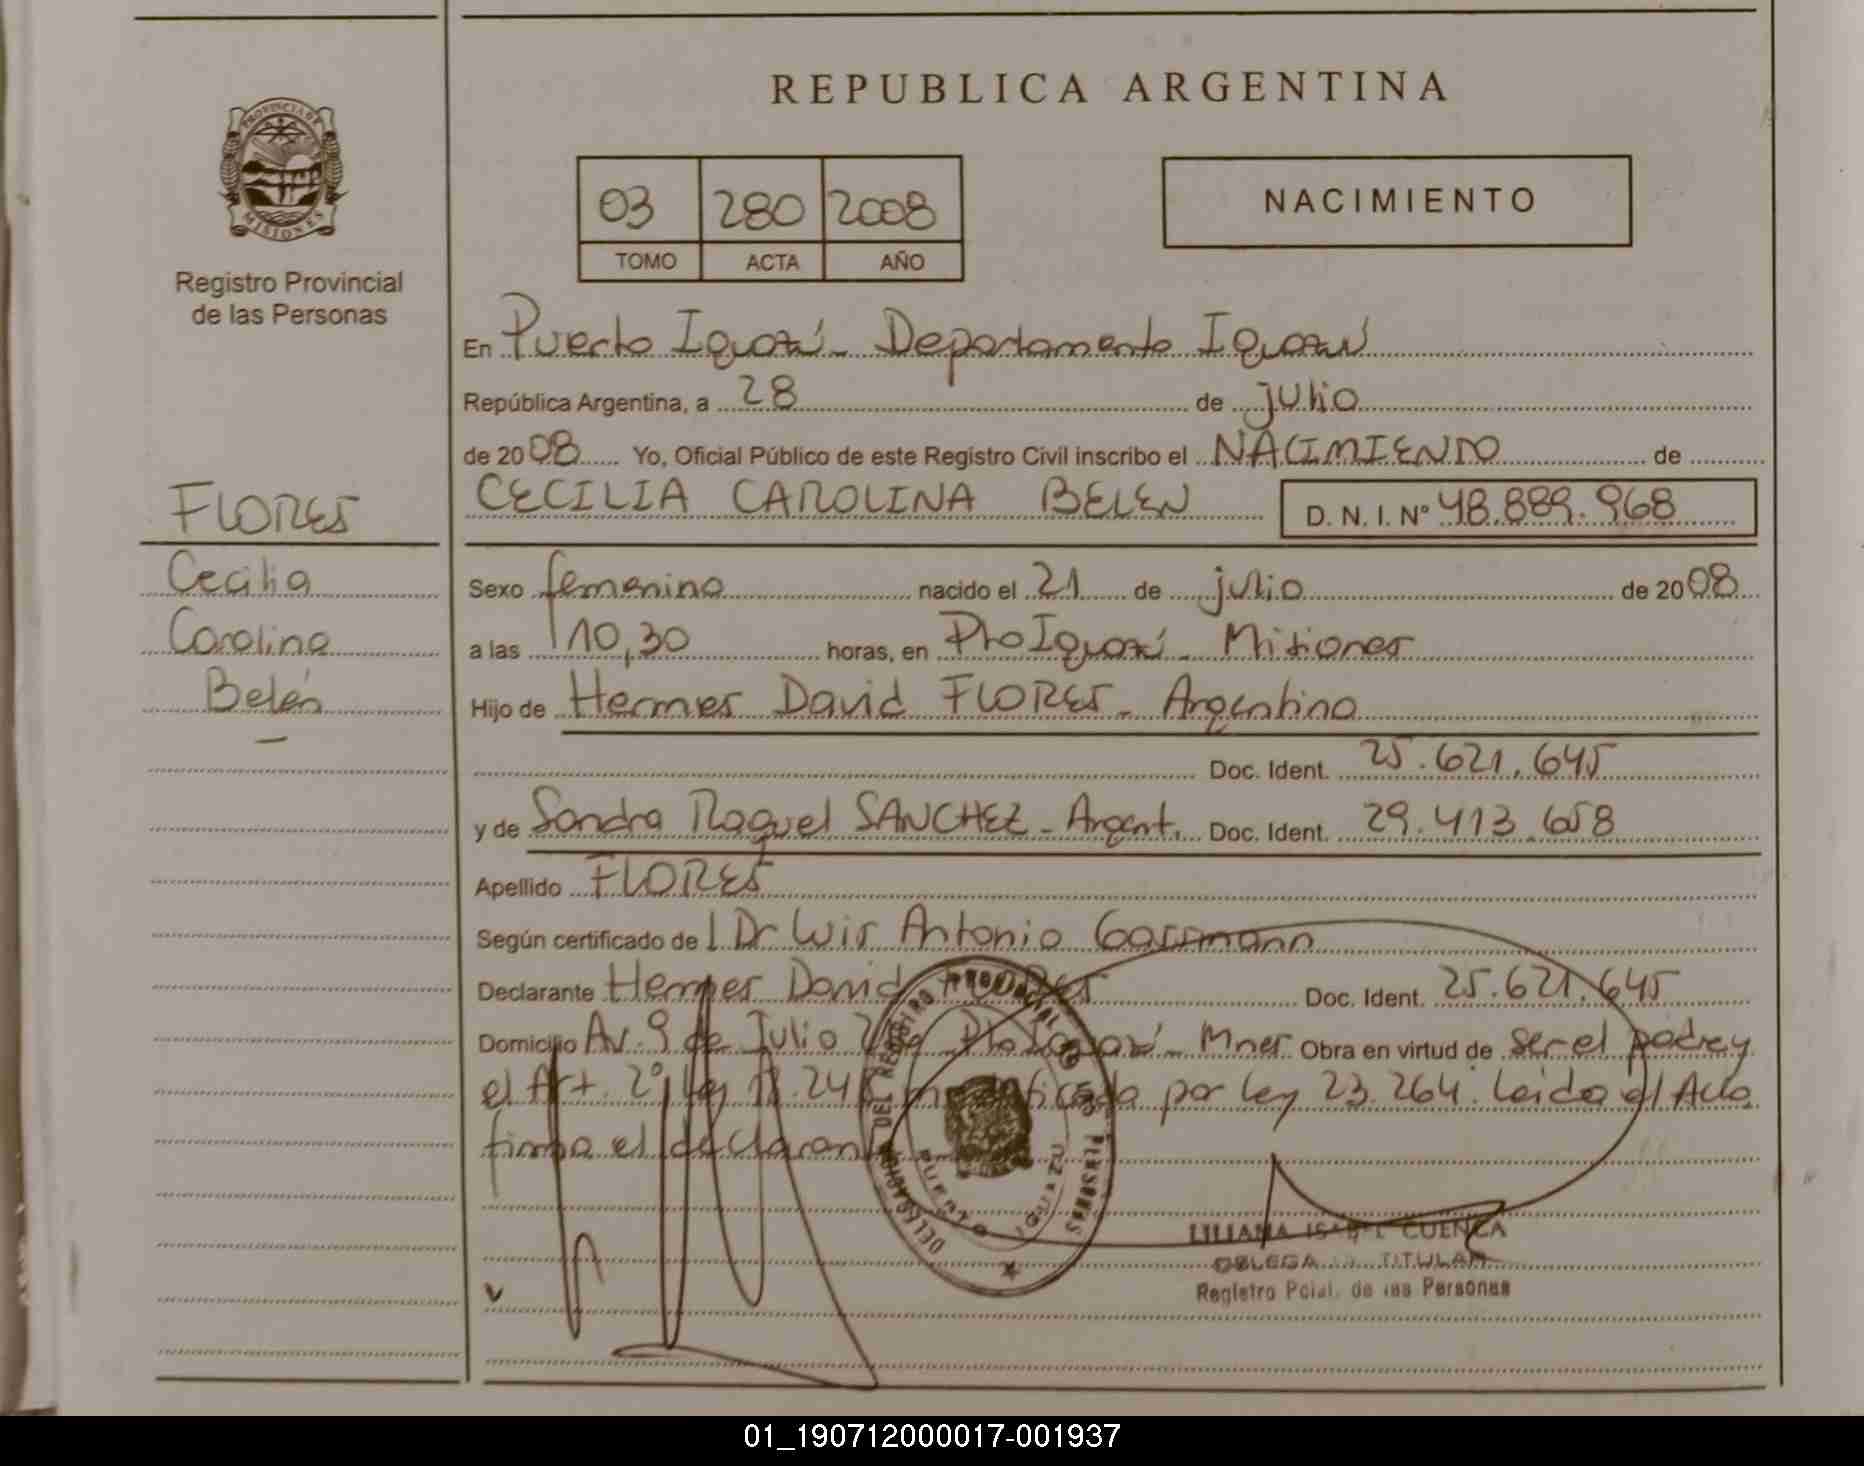 REPUBLICA ARGENTINA
PROVINCIA DE
MISIONES
Registro Provincial
de las Personas
03 280 2008
TOMO ACTA AÑO
NACIMIENTO
En Puerto Iguazú - Departamento Iguazú
República Argentina, a 28 de julio
de 2008 Yo, Oficial Público de este Registro Civil inscribo el NACIMIENTO de
CECILIA CAROLINA BELEN D. N. I. Nº 48.889.968
FLORES
Cecilia
Carolina
Belén
Sexo femenino nacido el 21 de julio de 2008
a las 10,30 horas, en Pto Iguazú - Misiones
Hijo de Hermes David FLORES - Argentino
Doc. Ident. 25.621.645
y de Sandra Raquel SANCHEZ - Argent. Doc. Ident. 29.413.658
Apellido FLORES
Según certificado de Dr Luis Antonio Gassmann
Declarante Hermes David FLORES Doc. Ident. 25.621.645
Domicilio Av. 9 de Julio Pto Iguazú - Mnes Obra en virtud de ser el padre y
el Art. 2º Ley modificada por ley 23.264. Leida el Acta
firma el declarante
DELEGACION DEL REGISTRO PROVINCIAL DE LAS PERSONAS
PUERTO IGUAZU
LILIANA ISABEL CUENCA
DELEGADA TITULAR
Registro Pcial. de las Personas
01_190712000017-001937